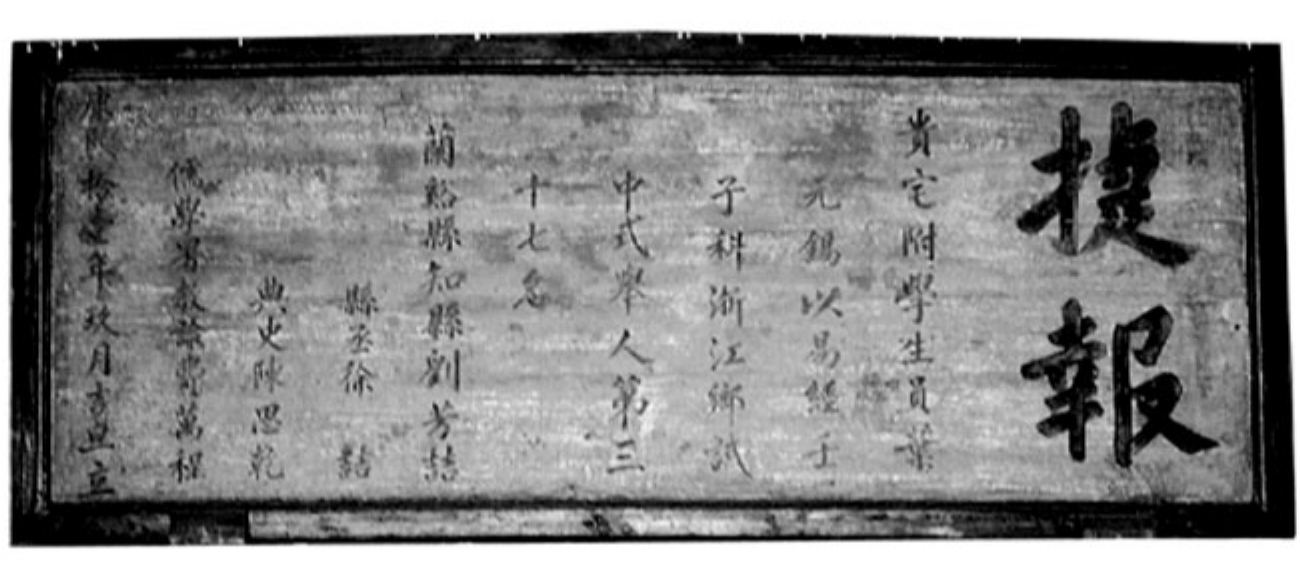 捷報
貴宅附學生員葉
元錫以易經壬
子科浙江鄉試
中式舉人第三
十七名
蘭谿縣知縣劉芳喆
縣丞徐
典史陳思乾
儒學署教諭費萬程
康熙拾壹年玖月吉旦立